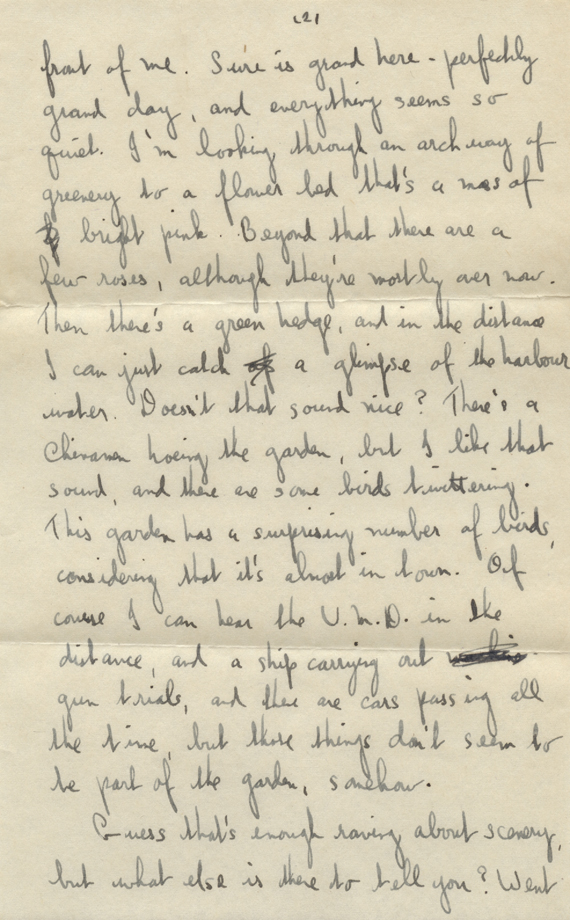 (2)
front of me. Sure is grand here - perfectly
grand day, and everything seems so
quiet. I'm looking through an archway of
greenery to a flower bed that's a mass of
bright pink. Beyond that there are a
few roses, although they're mostly over now.
Then there's a green hedge, and in the distance
I can just catch a glimpse of the harbour
water. Doesn't that sound nice? There's a
Chinaman hoeing the garden, but I like that
sound, and there are some birds twittering.
This garden has a surprising number of birds,
considering that it's almost in town. Of
course I can hear the U.M.D. in the
distance, and a ship carrying out
gun trials, and there are cars passing all
the time, but those things don't seem to
be part of the garden, somehow.
Guess that's enough raving about scenery,
but what else is there to tell you? Went